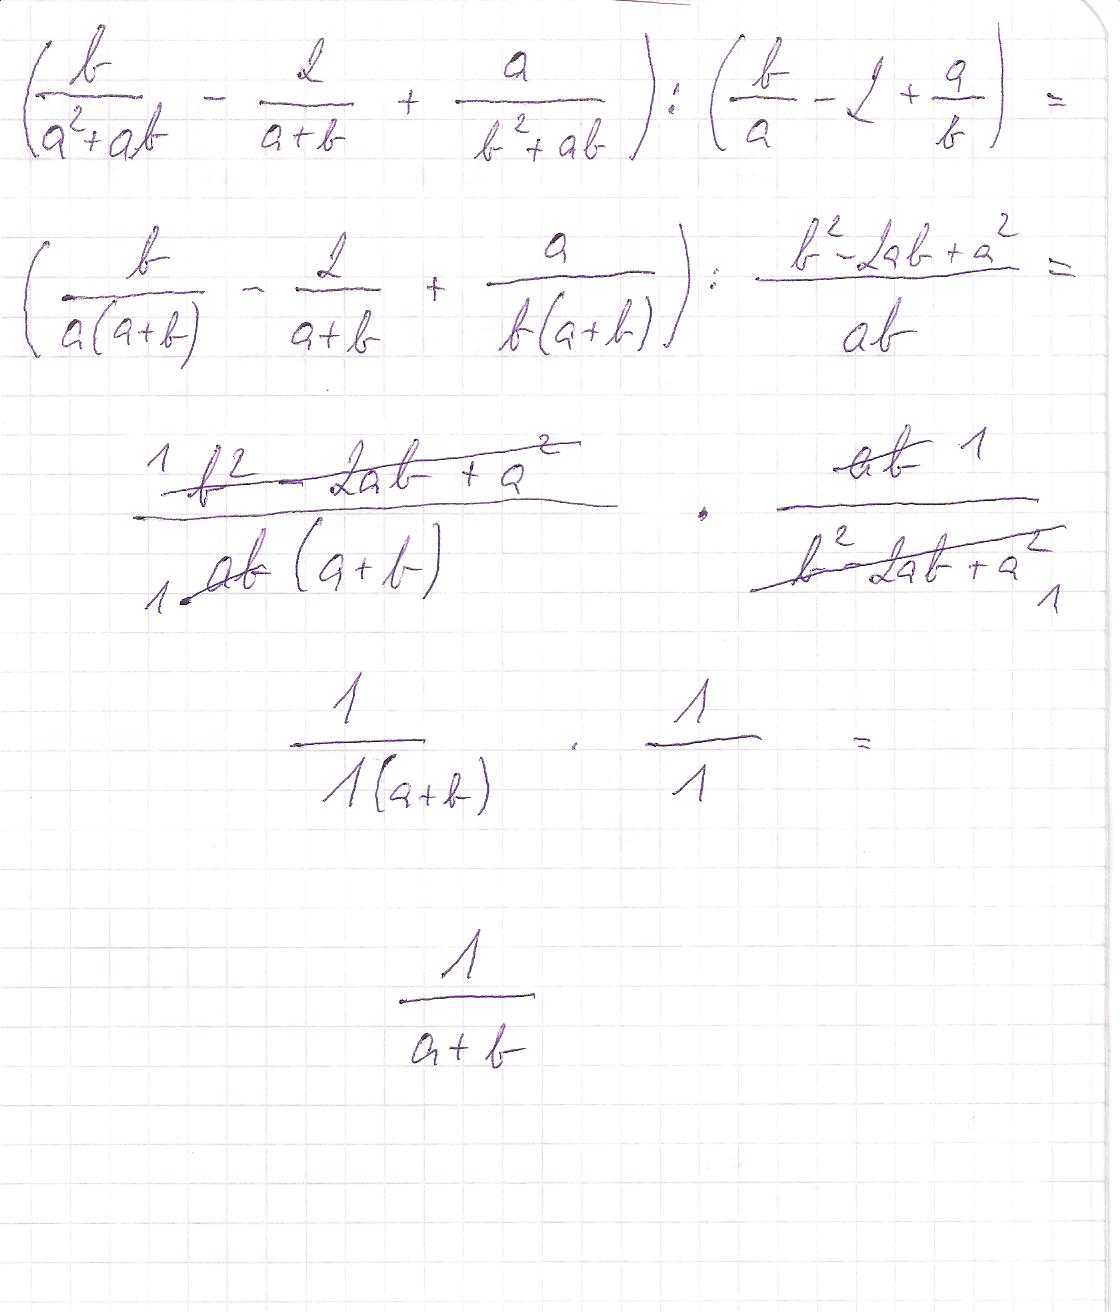 (b/(a²+ab) - 2/(a+b) + a/(b²+ab)) : (b/a - 2 + a/b) =
(b/(a(a+b)) - 2/(a+b) + a/(b(a+b))) : (b²-2ab+a²)/(ab) =
1 (b² - 2ab + a²)/(ab (a+b)) 1 · (ab)/(b²-2ab+a²) 1 1
1/(1(a+b)) · 1/1 =
1/(a+b)